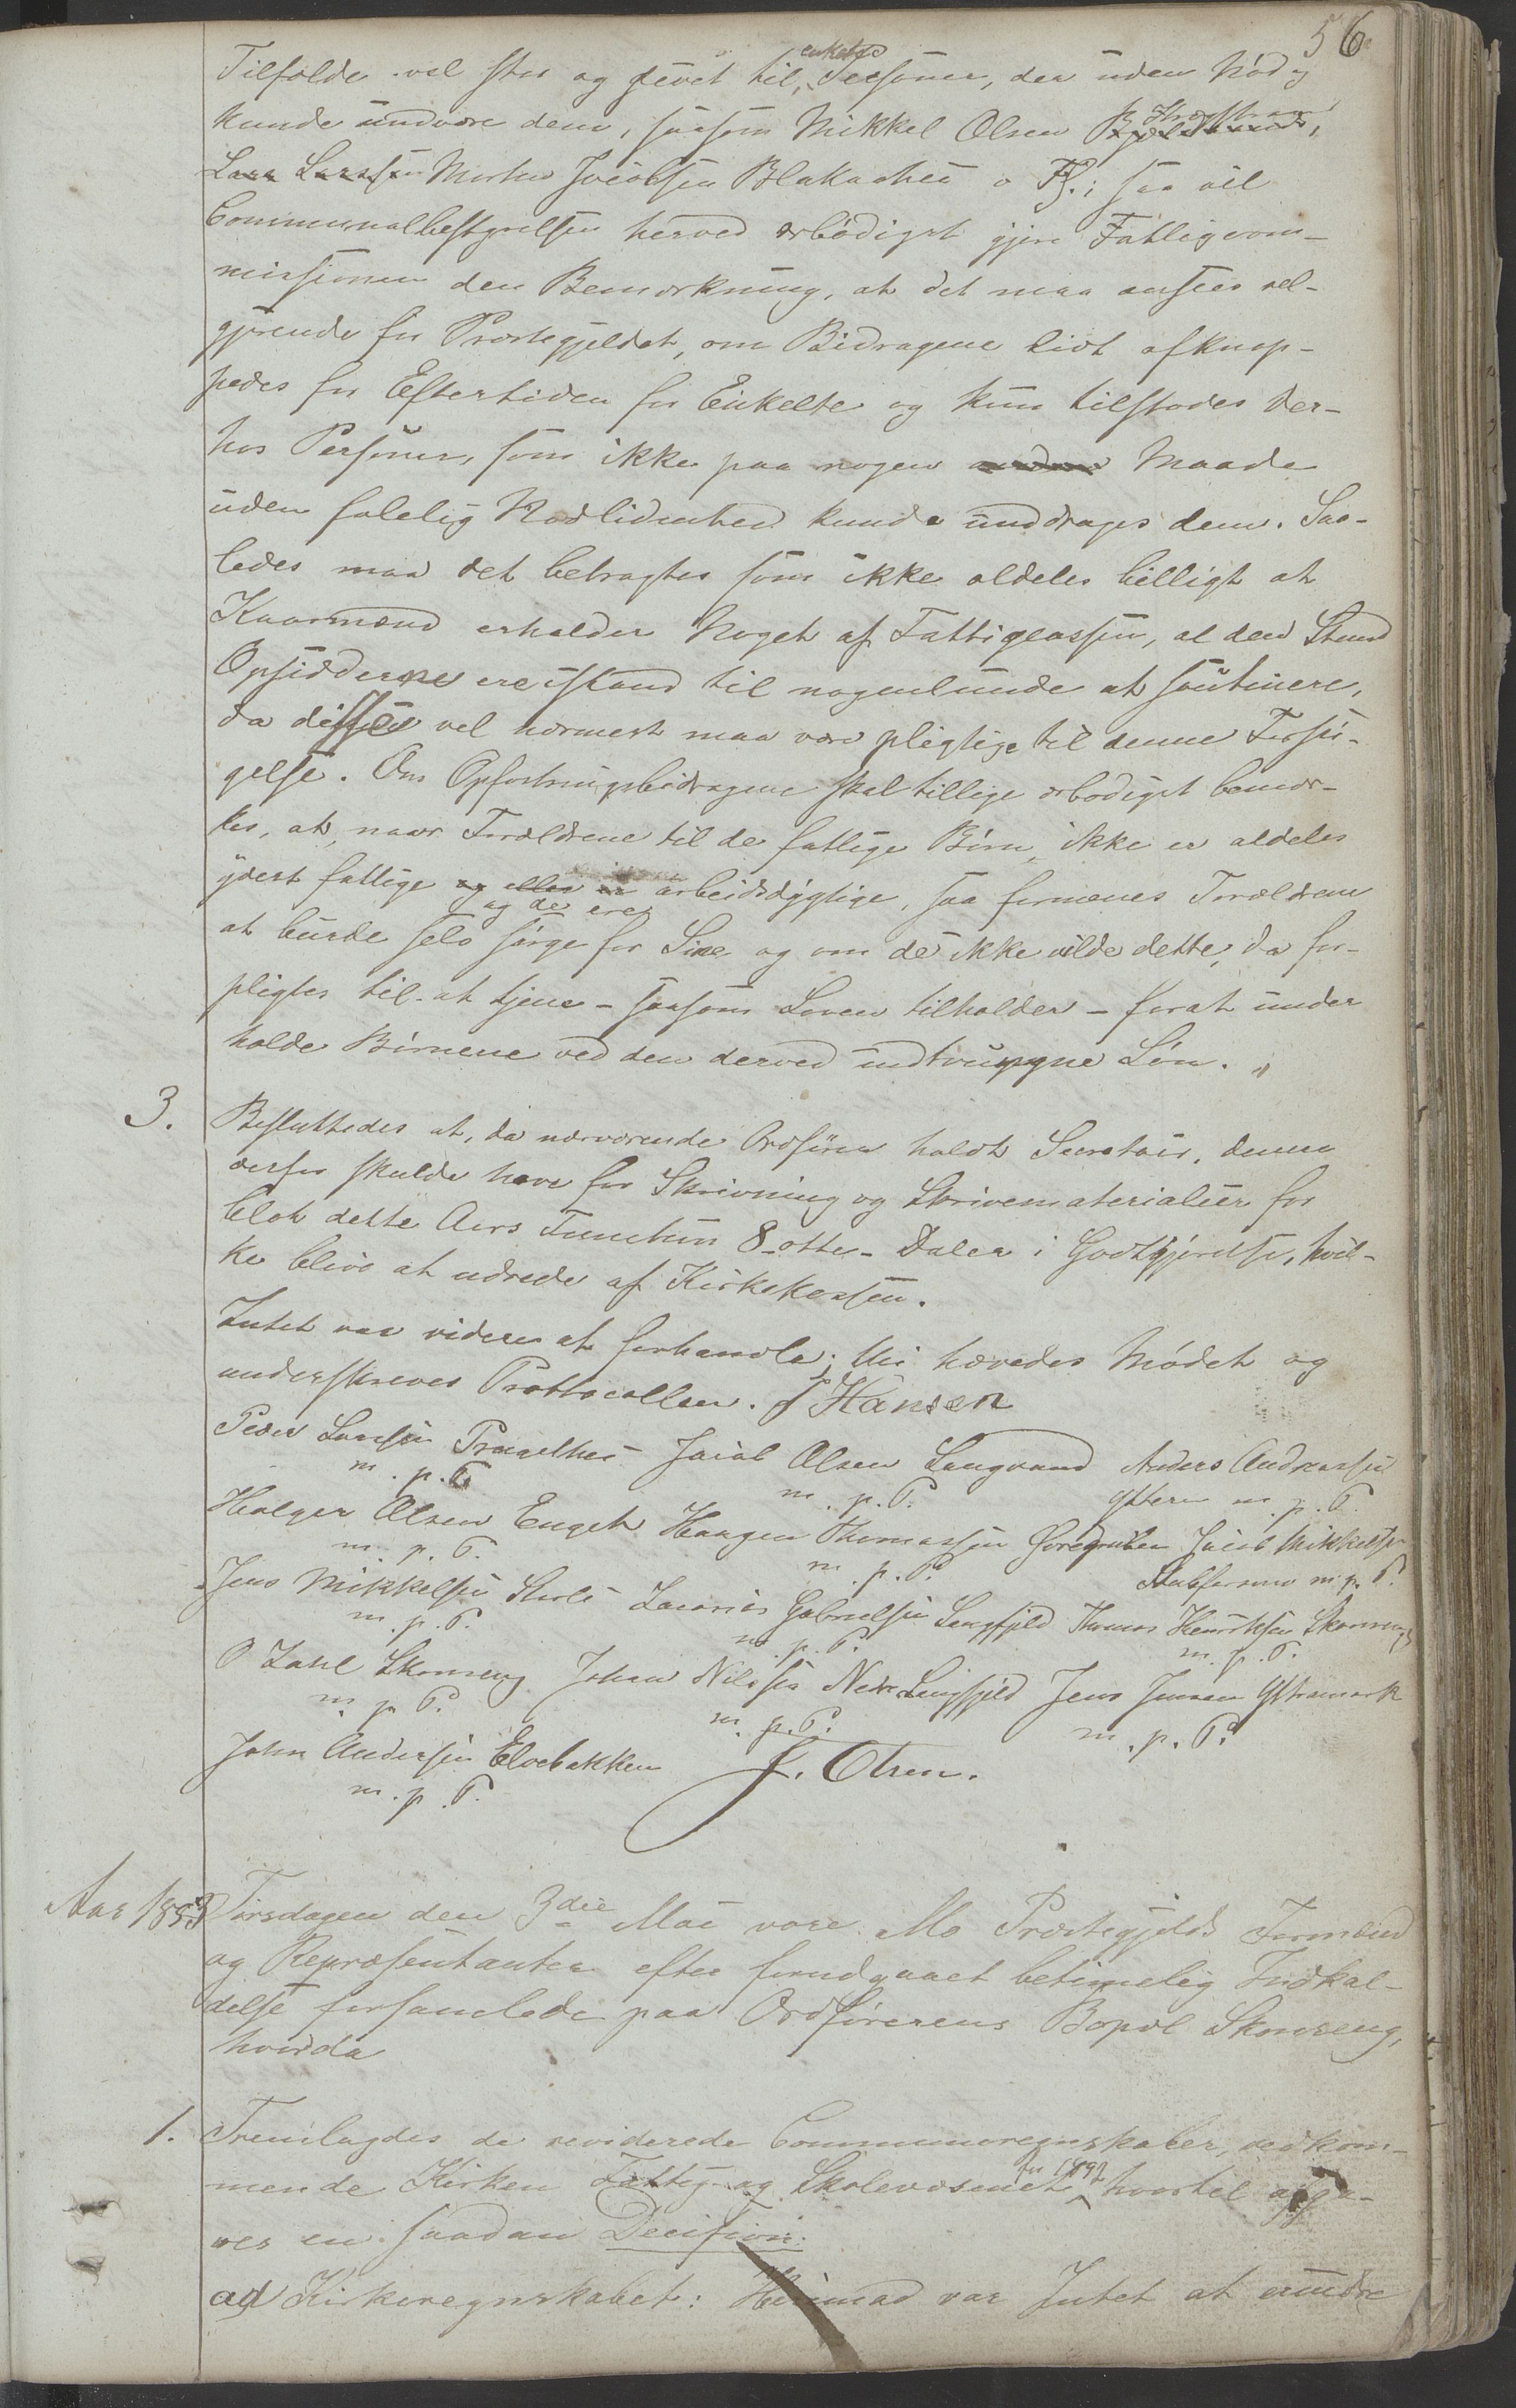 56
Tilfælde vel stor og givet til enkelte Personer, der uden Nød
kunde undvære dem, saasom Mikkel Olsen
Lars Larssen Morten Jacobsen Blakaahei o Fl.; saa vil
Communalbestyrelsen herved ærbødigst gjøre Fattigcom-
missionen den Bemærkning, at det maa ansees vel-
gjørende for Præstegjeldet, om Bidragene lidt afknap-
pedes for Eftertiden for Enkelte og kun tilstodes der-
hos Personer, som ikke paa nogen anden Maade
uden følelig Nødlidenhed kunde unddrages dem. Saa-
ledes maa det betragtes som ikke aldeles billigt at
Kaarmænd erholder Noget af Fattigcassen, al den Stund
Opsidderne ere istand til nogenlunde at soutinere,
da disse vel nærmest maa være pligtige til denne Forsør-
gelse. Om Opfostringsbidragene skal tillige ærbødigst bemær-
kes, at, naar Forældrene til de fattige Børn, ikke er aldeles
yderst fattige og eller er arbeidsdygtige, saa formenes Forældrene
og de ere
at burde selv sørge for Sine og om de ikke vilde dette, da for-
pligtes til at tjene - saasom Loven tilholder - forat under
holde Børnene ved den derved indtrungne Løn. "
3. Besluttedes at, da nærværende Ordfører holdt Secretair, denne
derfor skulde have for Skrivning og Skrivematerialier for
blot dette Aars Function 8 - otte - Daler i Godtgjørelse, hvil-
ke blive at udrede af Kirkekassen.
Intet var videre at forhandle; thi hævedes Mødet og
underskreves Protocollen. J Hansen
Peder Larssen Jacob Olsen Langvand Anders Andreassen
m. p. P. m. p. P. Ytteren m. p. P.
Holger Olsen Enget Haagen Thomassen Jacob Mikkelsen
m. p. P. m. p. P. Stabforsmo m. p. P.
Jens Mikkelsen Zacarias Gabrielsen Langfjeld Thomas Henriksen Skonseng
m. p. P. m. p. P. m. p. P.
O Zahl Skonseng Johan Nilssen Nedre Langfjeld Jens Jensen Yttermark
m. p. P. m. p. P. m. p. P.
John Andersen Elvebakken J. Olsen.
m. p. P.
Aar 1853 Torsdagen den 3die Mai vare Mo Præstegjelds Formænd
og Repræsentanter efter forudgaaet betimelig Indkal-
delse forsamlede paa Ordførerens Bopæl Skonseng,
hvorda
1. Fremlagdes de reviderede Communeregnskaber, vedkom-
mende Kirken Fattig- og Skolevæsenet for hvortil afga-
ves en saadan Decision:
ad Kirkeregnskabet: Herimod var Intet at erindre